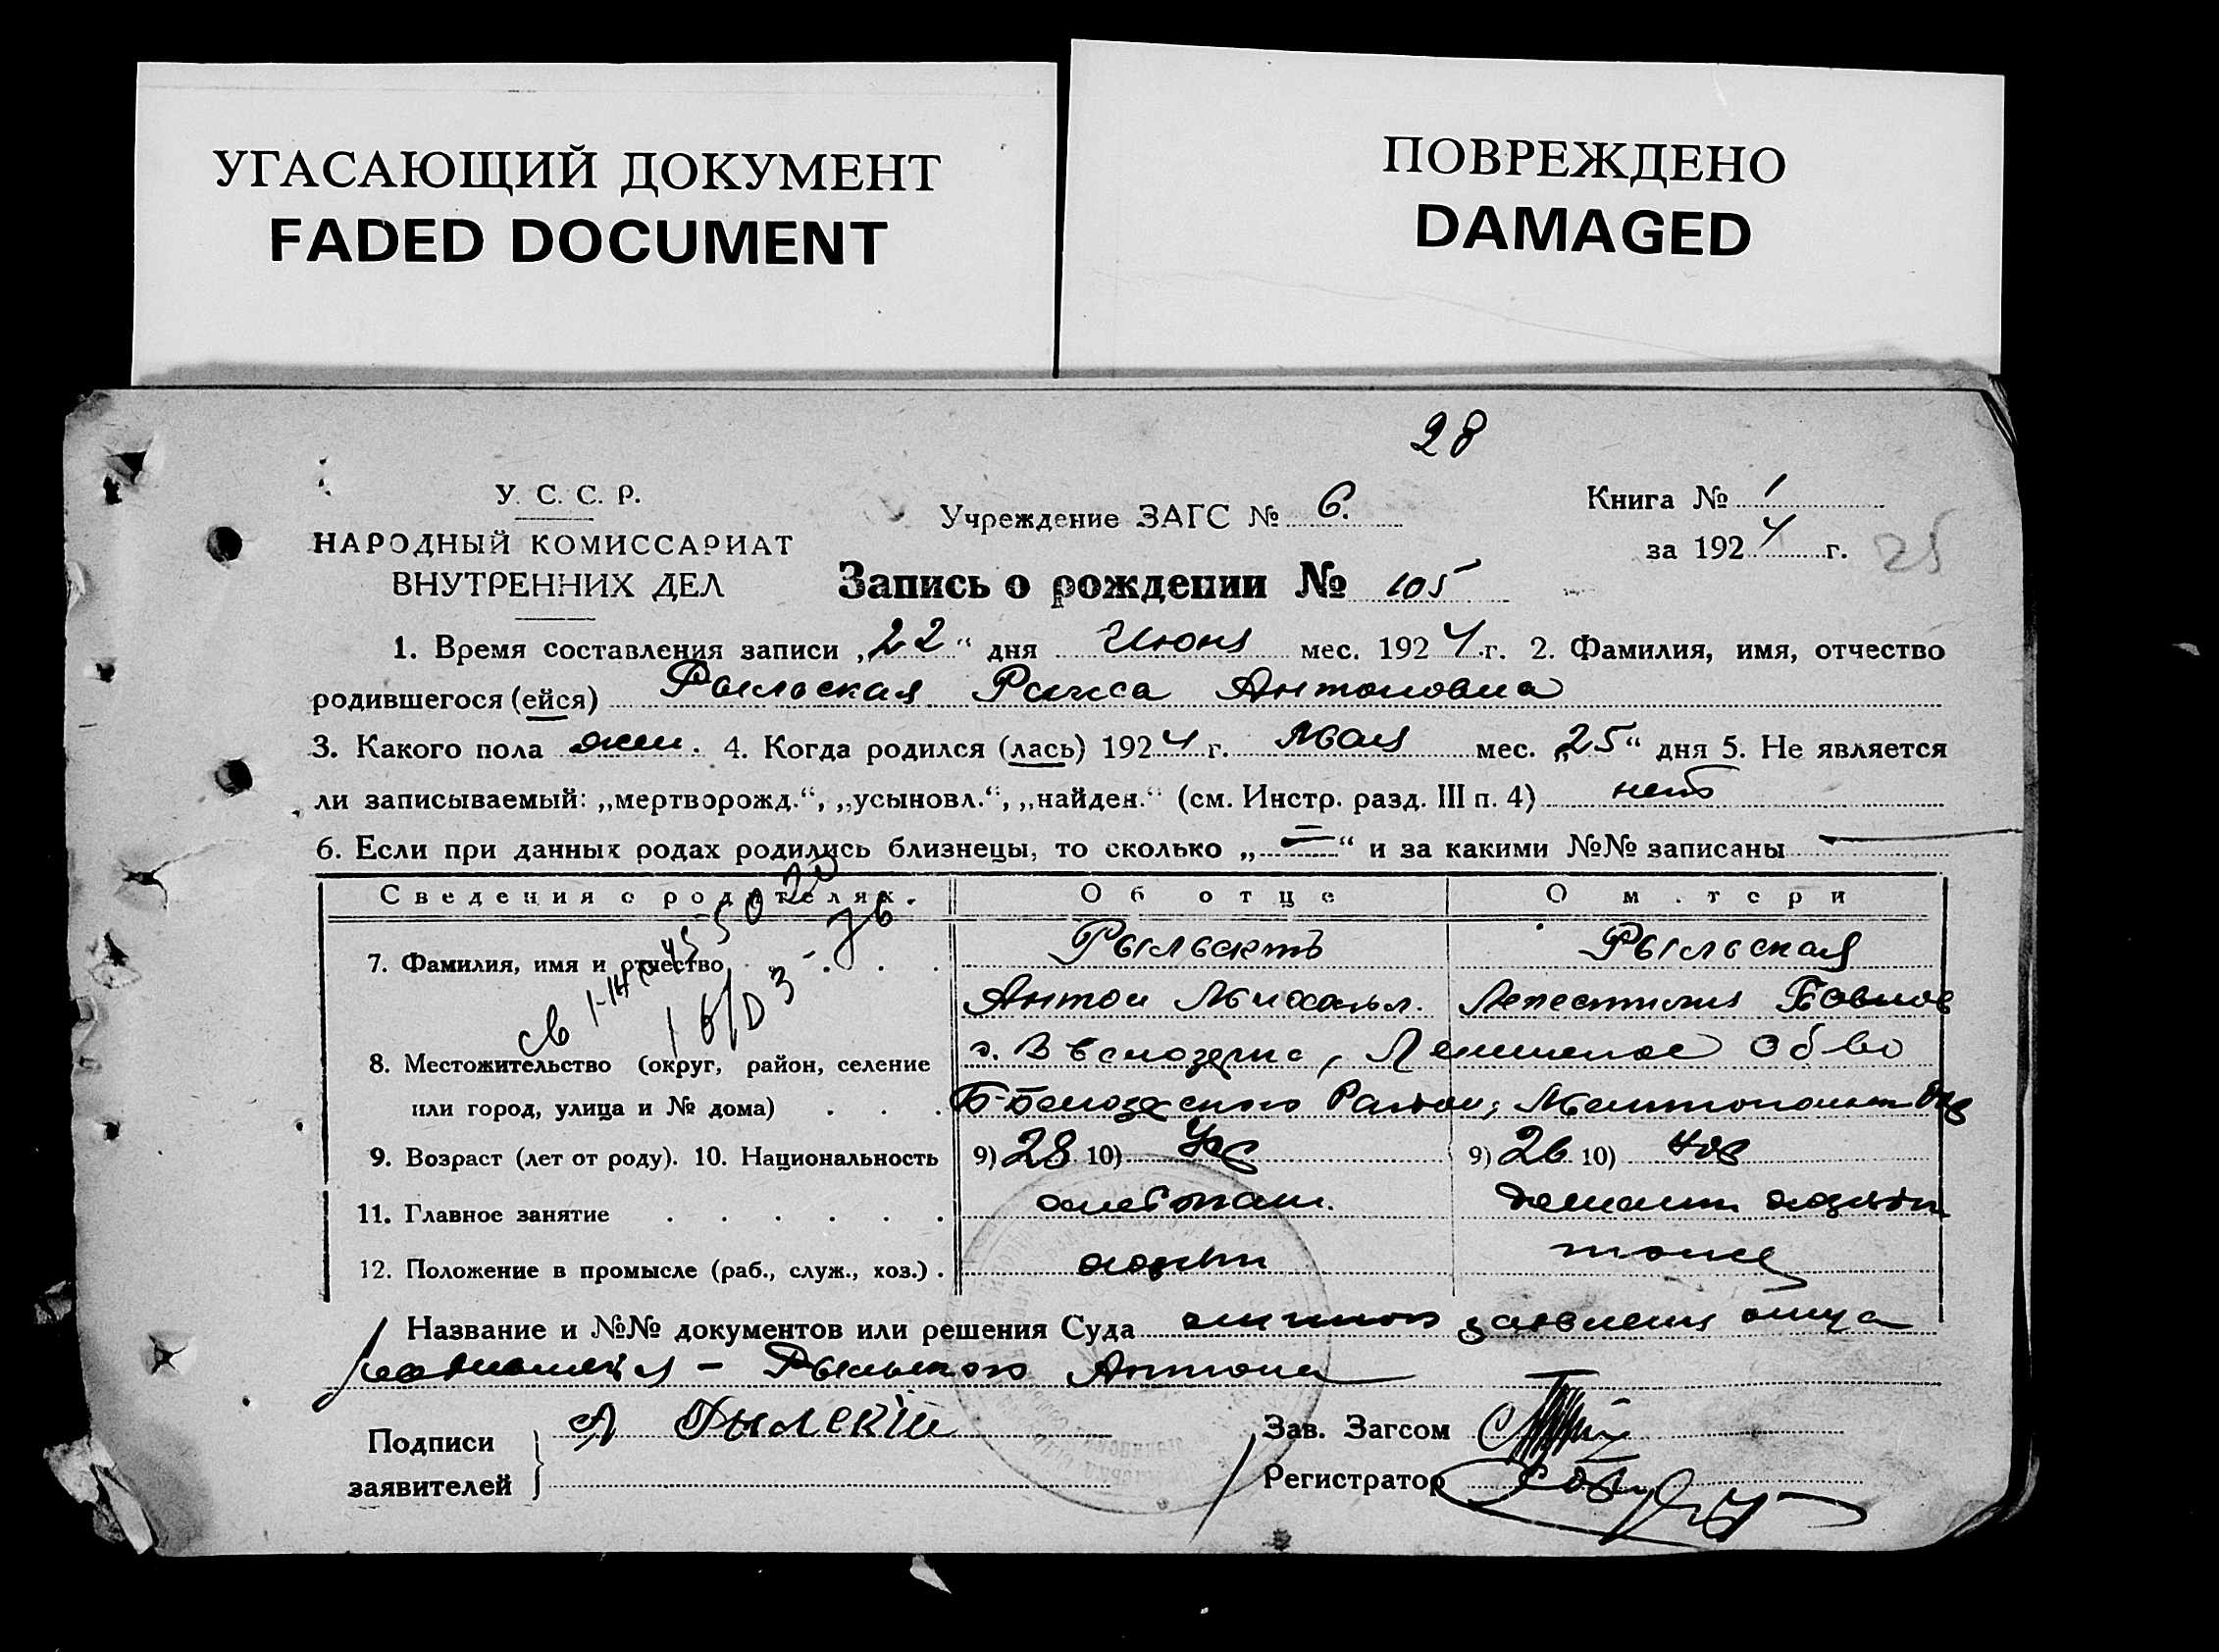 УГАСАЮЩИЙ ДОКУМЕНТ
FADED DOCUMENT
ПОВРЕЖДЕНО
DAMAGED
28
У. С. С. Р.
НАРОДНЫЙ КОМИССАРИАТ
ВНУТРЕННИХ ДЕЛ
Учреждение ЗАГС № 6.
Книга № 1
за 1924 г.
25
Запись о рождении № 105
1. Время составления записи „22“ дня Июня мес. 1924 г. 2. Фамилия, имя, отчество
родившегося (ейся) Рыльская Раиса Антоновна
3. Какого пола жен. 4. Когда родился (лась) 1924 г. Мая мес. „25“ дня 5. Не является
ли записываемый: „мертворожд.“, „усыновл.“, „найден.“ (см. Инстр. разд. III п. 4) нет
6. Если при данных родах родились близнецы, то сколько „—“ и за какими №№ записаны —
Сведения о родителях. Об отце О матери
7. Фамилия, имя и отчество Рыльский Рыльская
Антон Михайл. Павлов
8. Местожительство (округ, район, селение
или город, улица и № дома)
Района, Мелитопольск
9. Возраст (лет от роду). 10. Национальность 9) 28 10) Укр 9) 26 10) Укр
11. Главное занятие хлебопаш. домашн хозяйн
12. Положение в промысле (раб., служ., хоз.) хозяин
Название и №№ документов или решения Суда заявления отца
Рыльского Антона
Подписи
заявителей
А Рыльскій
Зав. Загсом
Регистратор